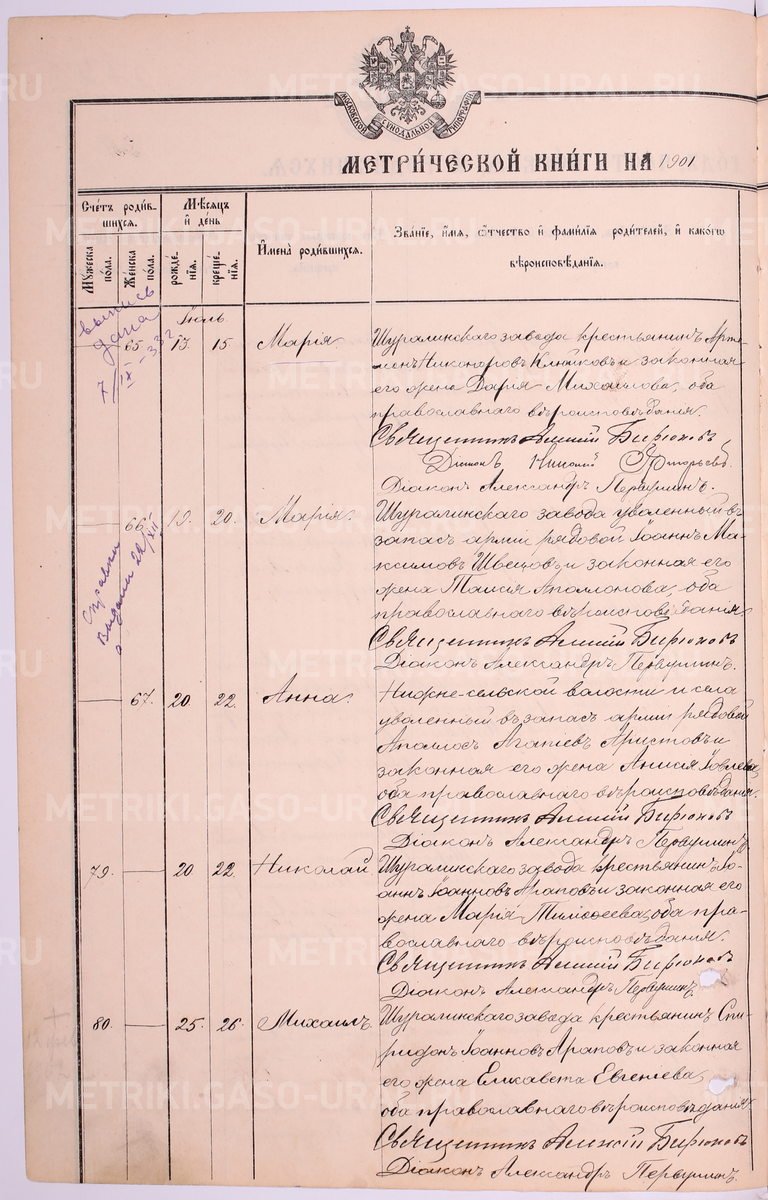 МОСКОВСКОЙ СѴНОДАЛЬНОЙ ТИПОГРАФІИ
МЕТРИ́ЧЕСКОЙ КНИ́ГИ НА 1901
Сче́тъ роди́вшихся.
Му́жеска по́ла.
Же́нска по́ла.
Мѣ́сяцъ и де́нь
рожде́нїя.
креще́нїя.
И҆мена̀ роди́вшихся.
Зва́нїе, и҆́мя, ѻ҆́тчество и҆ фами́лїя роди́телей, и҆ како́гѡ
вѣроисповѣ́данїя.
выпись
дана
Іюль.
— 65 13. 15 Марія. Шуралинскаго завода крестьянинъ Арте-
и законная
его жена Дарія Михаилова, оба
православнаго вѣроисповѣданія.
Священникъ Алексій Бирюковъ
Діаконъ Александръ Первушинъ.
— 66 19. 20. Марія. Шуралинскаго завода уволенный въ
запасъ арміи рядовой Іоаннъ Ма-
ксимовъ Швецовъ и законная его
жена Таисія Аполлонова, оба
православнаго вѣроисповѣданія
Справка
выдана 22/XII
Священникъ Алексій Бирюковъ
Діаконъ Александръ Первушинъ.
— 67. 20. 22. Анна. Нижне-сельской волости и села
уволенный въ запасъ арміи рядовой
Агапіевъ Аристовъ и
законная его жена Анисія
оба православнаго вѣроисповѣданія.
Священникъ Алексій Бирюковъ
Діаконъ Александръ Первушинъ
79. — 20 22. Николай Шуралинскаго завода крестьянинъ Іо-
аннъ Іоанновъ Араповъ и законная его
жена Марія Тимоѳеева, оба пра-
вославнаго вѣроисповѣданія.
Священникъ Алексій Бирюковъ
Діаконъ Александръ Первушинъ.
80. — 25. 26. Михаилъ. Шуралинскаго завода крестьянинъ Спи-
ридонъ Іоанновъ Араповъ и законная
его жена Елисавета Евгеніева,
оба православнаго вѣроисповѣданія.
Священникъ Алексій Бирюковъ
Діаконъ Александръ Первушинъ.
METRIKI.GASO-URAL.RU